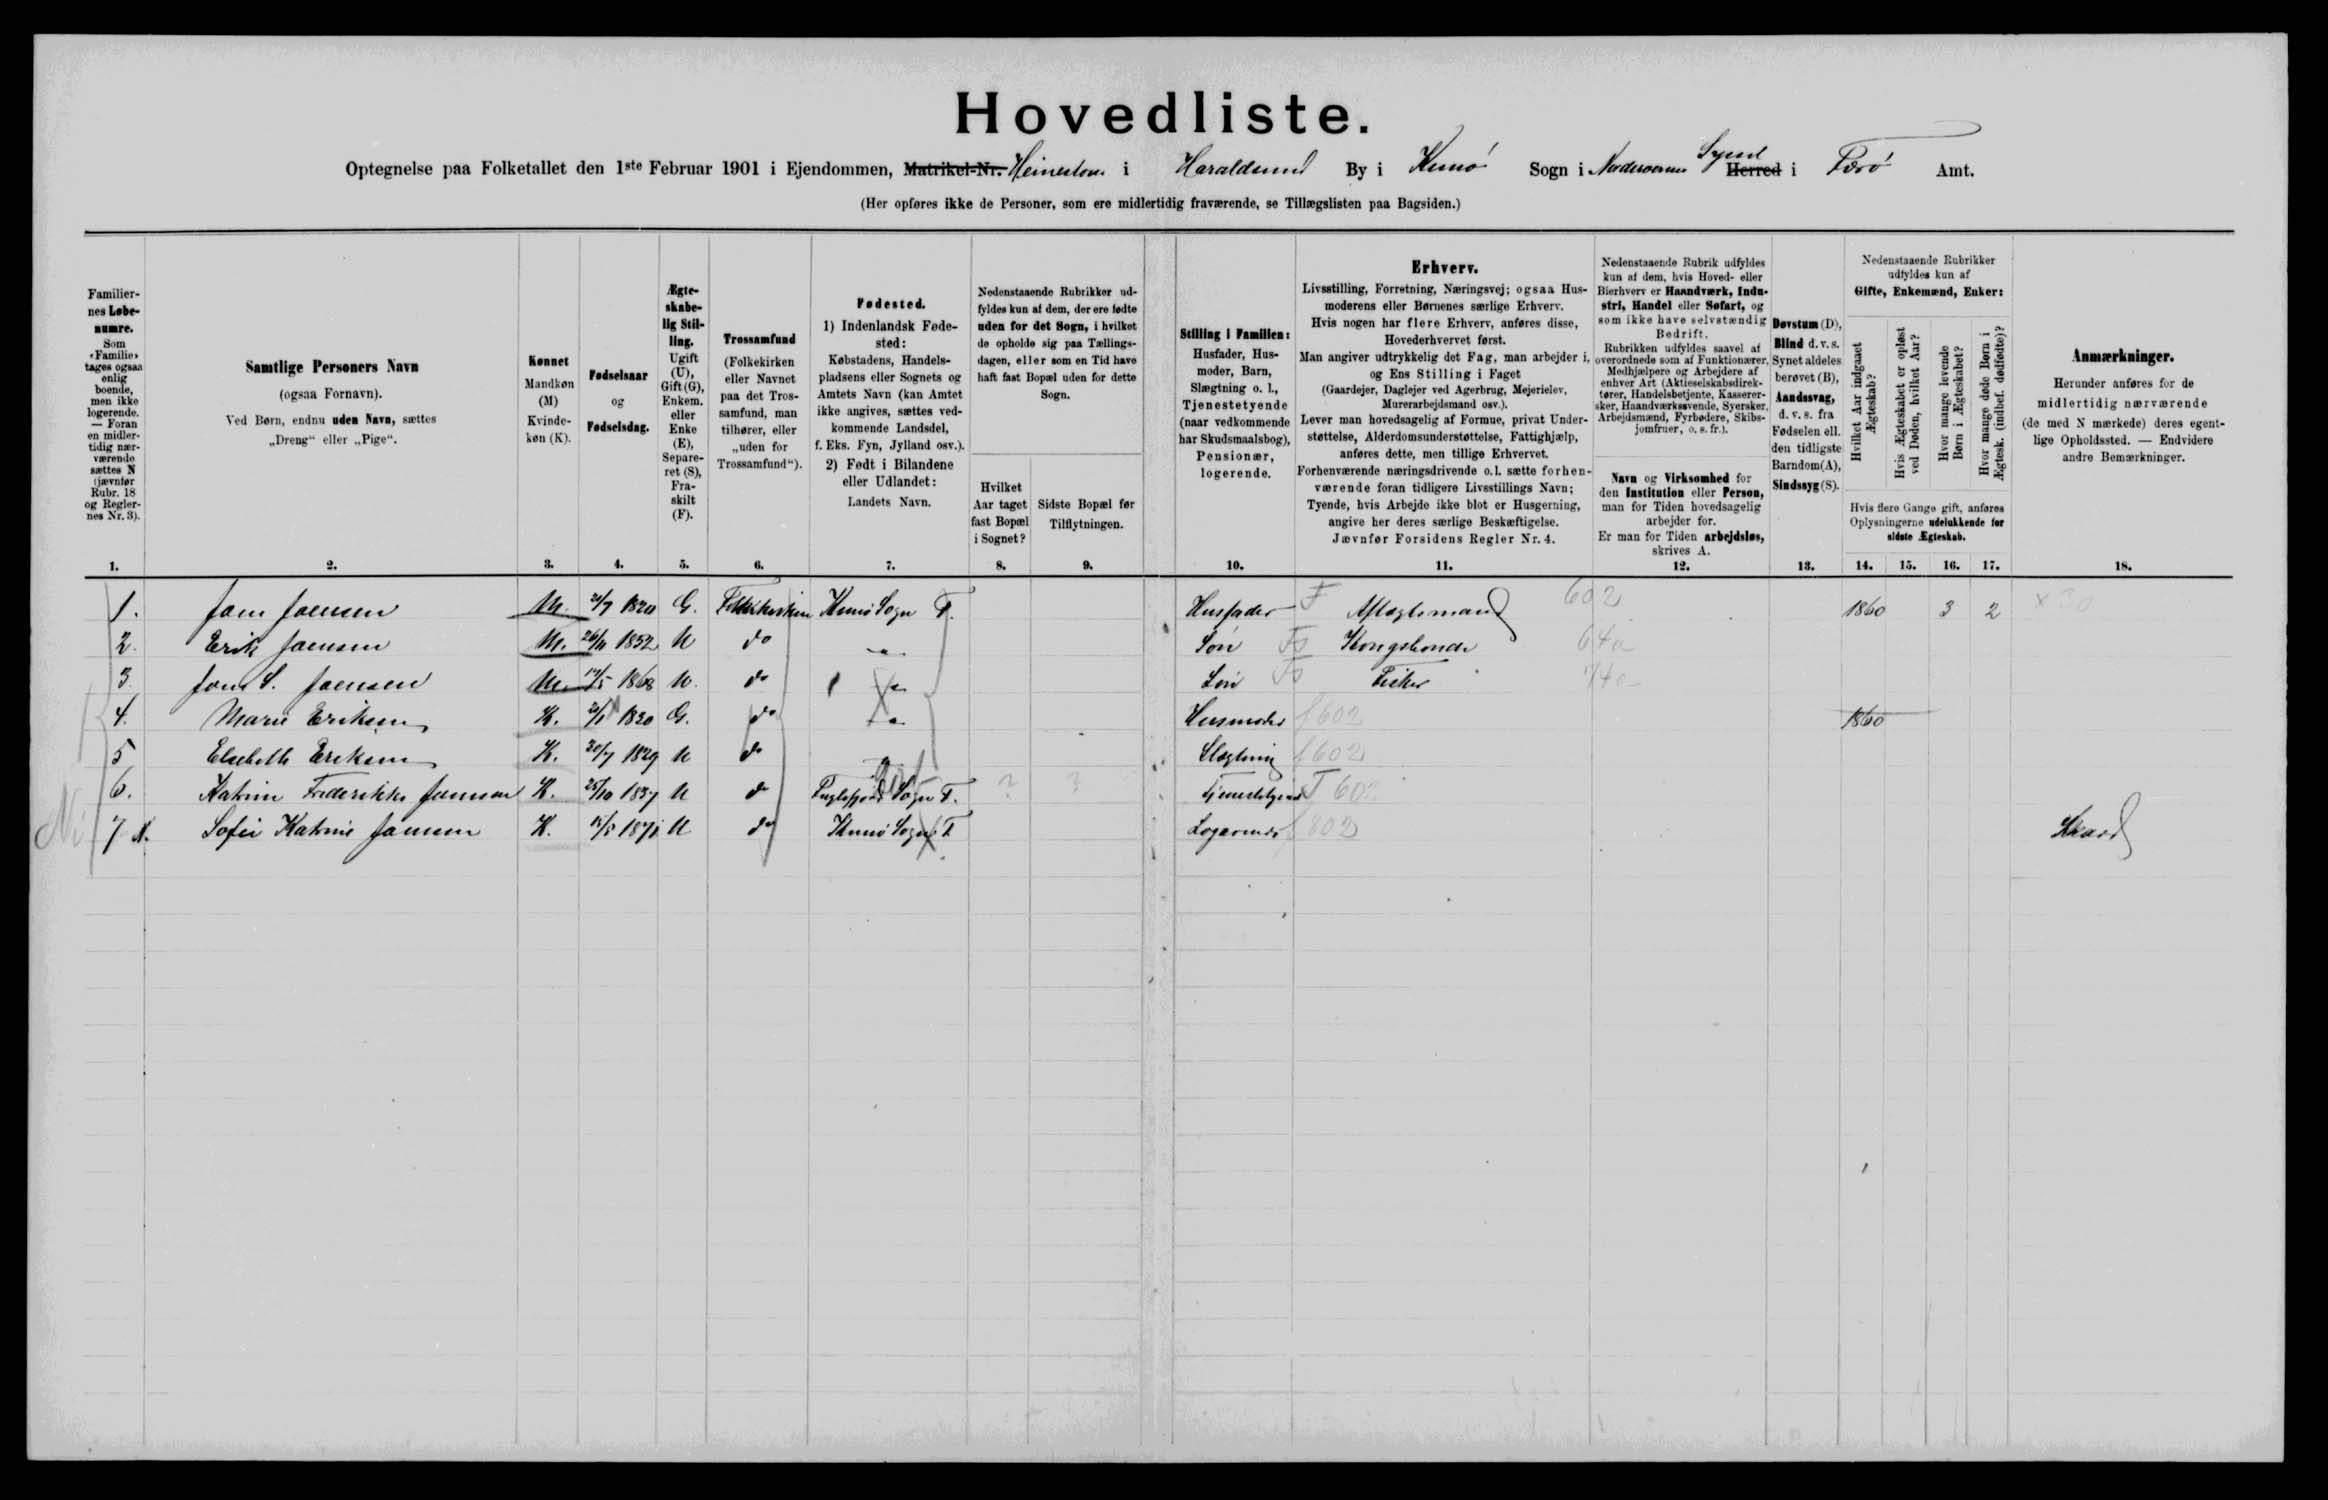 Hovedliste.
Optegnelse paa Folketallet den 1ste Februar 1901 i Ejendommen, Matrikel-Nr. i Haraldsund By i Kunø Sogn i Norderoernes Syssel Herred i Færø Amt.
(Her opføres ikke de Personer, som ere midlertidig fraværende, se Tillægslisten paa Bagsiden.)
Familier-
nes Løbe-
numre.
Som
«Familie»
tages ogsaa
enlig
boende,
men ikke
logerende.
— Foran
en midler-
tidig nær-
værende
sættes N
(jævnfør
Rubr. 18
og Regler-
nes Nr. 3).
1.
Samtlige Personers Navn
(ogsaa Fornavn).
Ved Børn, endnu uden Navn, sættes
„Dreng“ eller „Pige“.
2.
Kønnet
Mandkøn
(M)
Kvinde-
køn (K).
3.
Fødselsaar
og
Fødselsdag.
4.
Ægte-
skabe-
lig Stil-
ling.
Ugift
(U),
Gift (G),
Enkem.
eller
Enke
(E),
Separe-
ret (S),
Fra-
skilt
(F).
5.
Trossamfund
(Folkekirken
eller Navnet
paa det Tros-
samfund, man
tilhører, eller
„uden for
Trossamfund“).
6.
Fødested.
1) Indenlandsk Føde-
sted:
Købstadens, Handels-
pladsens eller Sognets og
Amtets Navn (kan Amtet
ikke angives, sættes ved-
kommende Landsdel,
f. Eks. Fyn, Jylland osv.).
2) Født i Bilandene
eller Udlandet:
Landets Navn.
7.
Nedenstaaende Rubrikker ud-
fyldes kun af dem, der ere fødte
uden for det Sogn, i hvilket
de opholde sig paa Tællings-
dagen, eller som en Tid have
haft fast Bopæl uden for dette
Sogn.
Hvilket
Aar taget
fast Bopæl
i Sognet?
8.
Sidste Bopæl før
Tilflytningen.
9.
Stilling i Familien:
Husfader, Hus-
moder, Barn,
Slægtning o. l.,
Tjenestetyende
(naar vedkommende
har Skudsmaalsbog),
Pensionær,
logerende.
10.
Erhverv.
Livsstilling, Forretning, Næringsvej; ogsaa Hus-
moderens eller Børnenes særlige Erhverv.
Hvis nogen har flere Erhverv, anføres disse,
Hovederhvervet først.
Man angiver udtrykkelig det Fag, man arbejder i,
og Ens Stilling i Faget
(Gaardejer, Daglejer ved Agerbrug, Mejerielev,
Murerarbejdsmand osv.).
Lever man hovedsagelig af Formue, privat Under-
støttelse, Alderdomsunderstøttelse, Fattighjælp,
anføres dette, men tillige Erhvervet.
Forhenværende næringsdrivende o.l. sætte forhen-
værende foran tidligere Livsstillings Navn;
Tyende, hvis Arbejde ikke blot er Husgerning,
angive her deres særlige Beskæftigelse.
Jævnfør Forsidens Regler Nr. 4.
11.
Nedenstaaende Rubrik udfyldes
kun af dem, hvis Hoved- eller
Bierhverv er Haandværk, Indu-
stri, Handel eller Søfart, og
som ikke have selvstændig
Bedrift.
Rubrikken udfyldes saavel af
overordnede som af Funktionærer,
Medhjælpere og Arbejdere af
enhver Art (Aktieselskabsdirek-
tører, Handelsbetjente, Kasserer-
sker, Haandværkssvende, Syersker,
Arbejdsmænd, Fyrbødere, Skibs-
jomfruer, o. s. fr.).
Navn og Virksomhed for
den Institution eller Person,
man for Tiden hovedsagelig
arbejder for.
Er man for Tiden arbejdsløs,
skrives A.
12.
Døvstum (D),
Blind d. v. s.
Synet aldeles
berøvet (B),
Aandssvag,
d. v. s. fra
Fødselen ell.
den tidligste
Barndom(A),
Sindssyg (S).
13.
Nedenstaaende Rubrikker
udfyldes kun af
Gifte, Enkemænd, Enker:
Hvilket Aar indgaaet
Ægteskab?
Hvis Ægteskabet er opløst
ved Døden, hvilket Aar?
Hvor mange levende
Børn i Ægteskabet?
Hvor mange døde Børn i
Ægtesk. (indbef. dødfødte)?
Hvis flere Gange gift, anføres
Oplysningerne udelukkende for
sidste Ægteskab.
14. 15. 16. 17.
Anmærkninger.
Herunder anføres for de
midlertidig nærværende
(de med N mærkede) deres egent-
lige Opholdssted. — Endvidere
andre Bemærkninger.
18.
1. Joen Joensen M. 1820 G. Folkekirken Kunø Sogn F. Husfader F Aftægtsmand 602 1860 3 2 x 30
2. Erik Joensen M. 26/11 1852 U do Søn Fo Kongsbonde 64a
3 Joen S. Joensen M. 1868 U. do Søn Fo Fisker 74a
4. Marie Eriksen K. 1820 G. do Husmoder f 602 1860
5 Elsebeth Eriksen K. 20/7 1829 U do Slægtning f 602
6. Katrine Frederikke Joensen K. 25/10 1837 U do Fuglefjord Sogn F. ? ? Tjenestetyende T 602
7 N. Sofie Katrine Joensen K. U do Kunø Sogn F Logerende f 802 Skaard